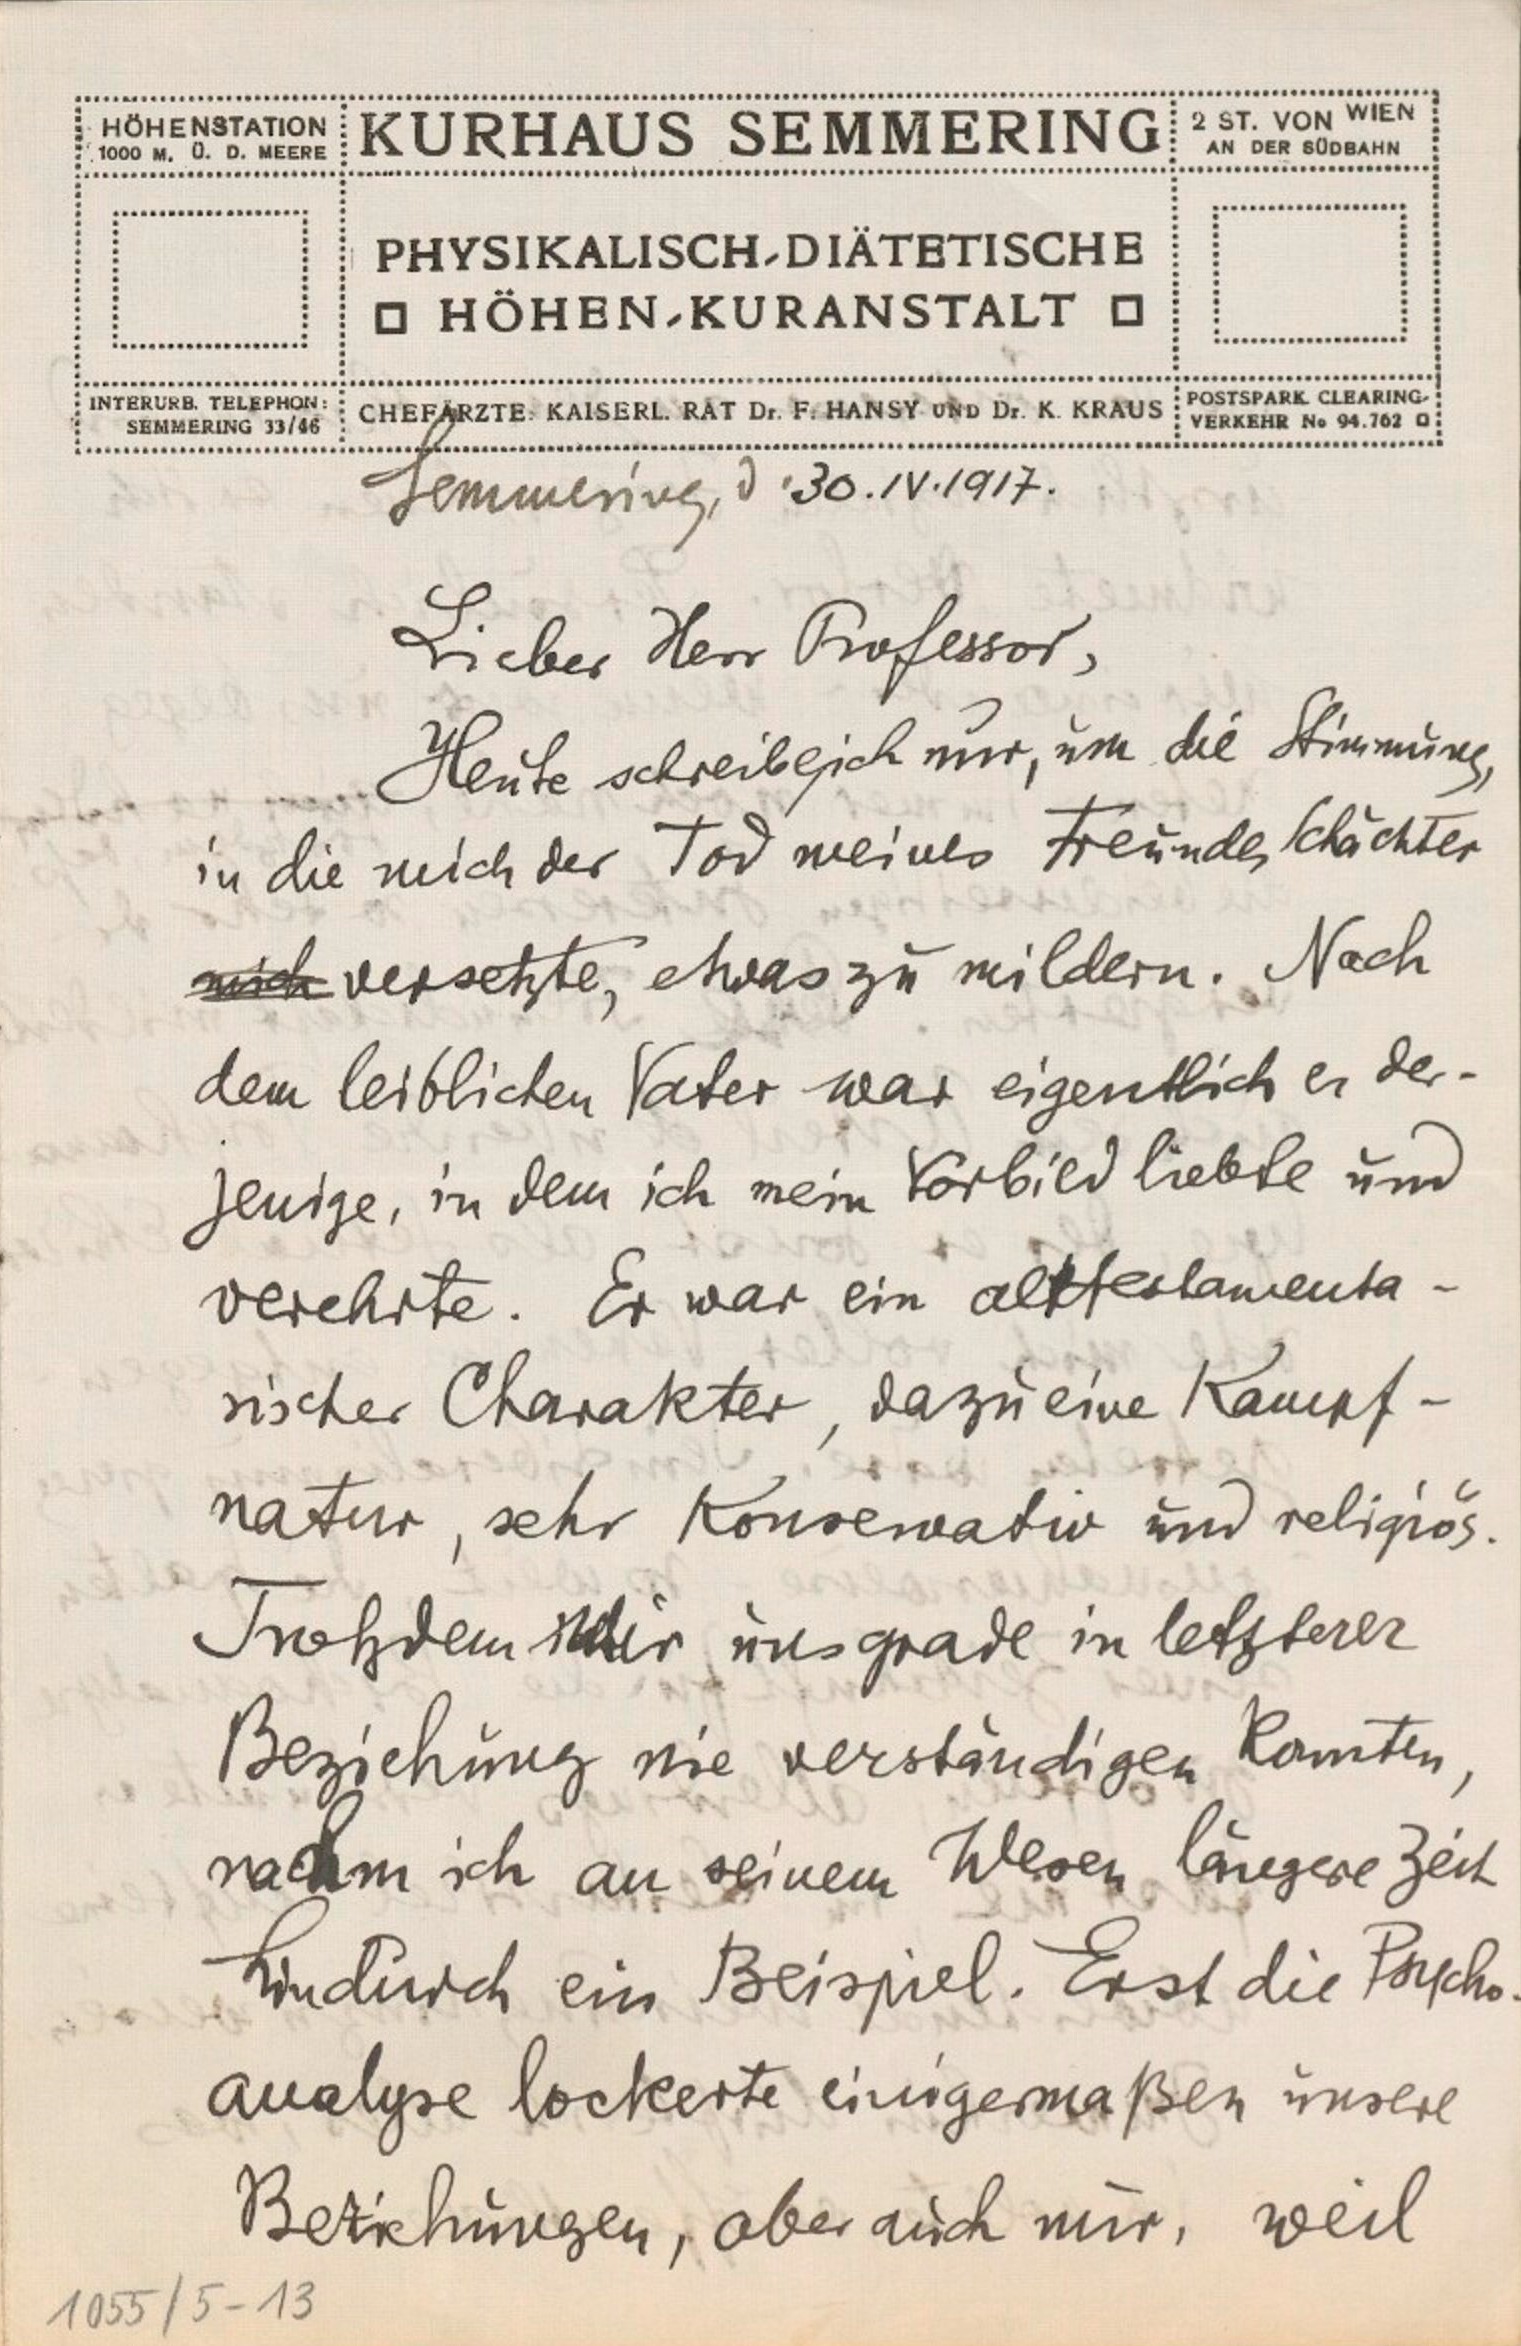 HÖHENSTATION
1000 M. Ü. D. MEERE
KURHAUS SEMMERING
2 ST. VON WIEN
AN DER SÜDBAHN
PHYSIKALISCH-DIÄTETISCHE
HÖHEN-KURANSTALT
INTERURB. TELEPHON:
SEMMERING 33/46
CHEFÄRZTE: KAISERL. RAT Dr. F. HANSY UND Dr. K. KRAUS
POSTSPARK. CLEARING-
VERKEHR No 94.762
Semmering, d. 30.IV.1917.
Lieber Herr Professor,
Heute schreibe ich nur, um die Stimmung,
in die mich der Tod meines Freundes Schächter
mich versetzte, etwas zu mildern. Nach
dem leiblichen Vater war eigentlich er der-
jenige, in dem ich mein Vorbild liebte und
verehrte. Er war ein alttestamenta-
rischer Charakter, dazu eine Kampf-
natur, sehr konservativ und religiös.
Trotzdem wir uns grade in letzterer
Beziehung nie verständigen konnten,
nahm ich an seinem Wesen längere Zeit
hindurch ein Beispiel. Erst die Psycho-
analyse lockerte einigermaßen unsere
Beziehungen, aber auch nur, weil
1055/5-13